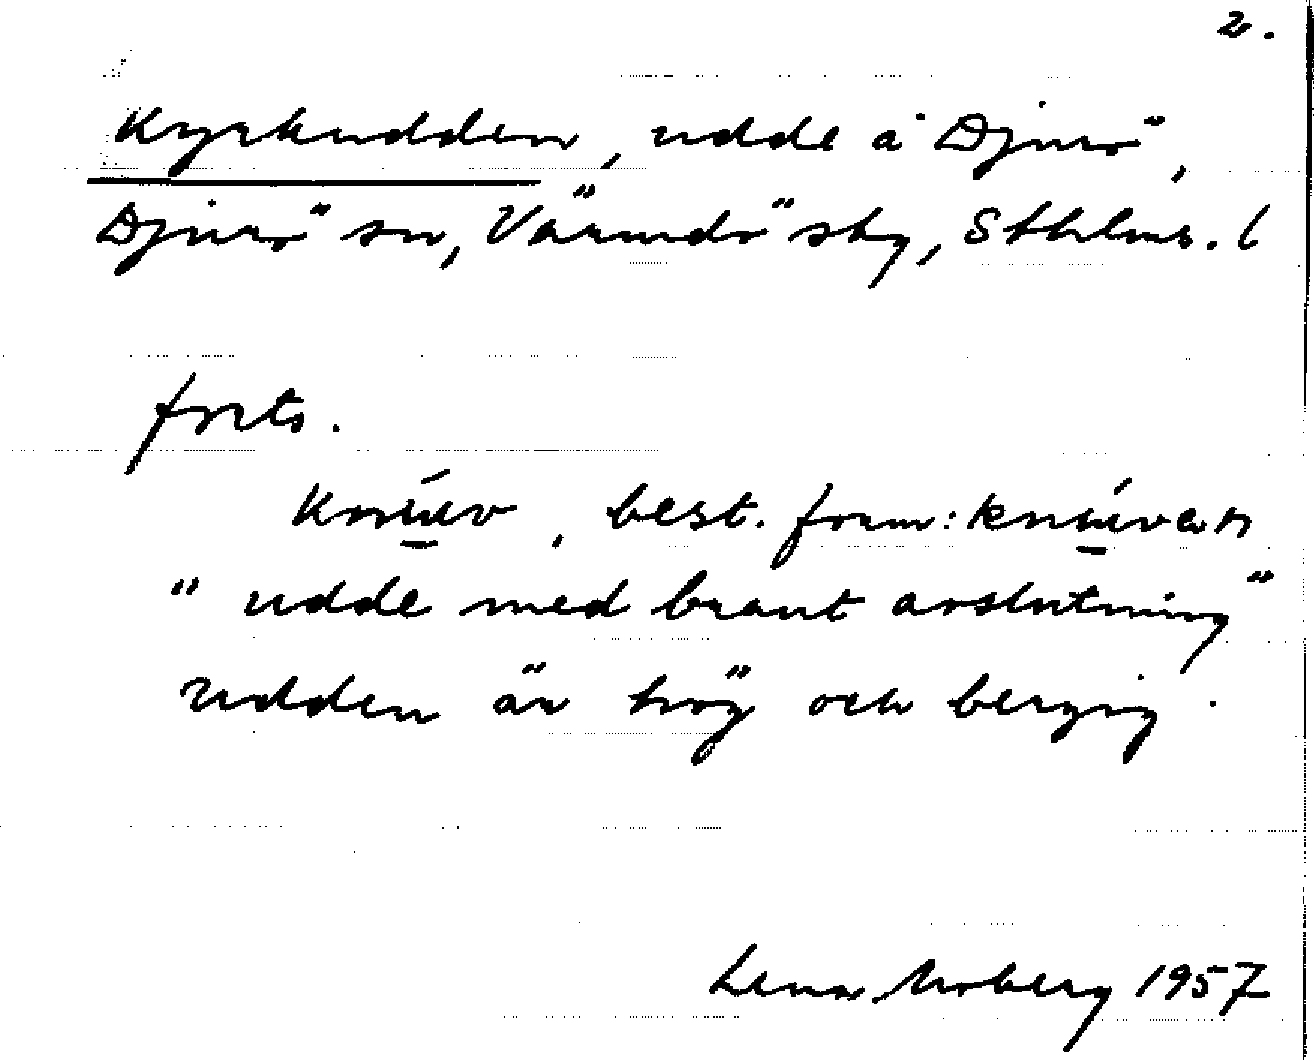 2.
Kyrkudden, udde å Djurö,
Djurö sn, Värmdö skg, Sthlms. l
forts.
best. form:
" udde med brant avslutning"
udden är hög och bergig.
Lena Moberg 1957